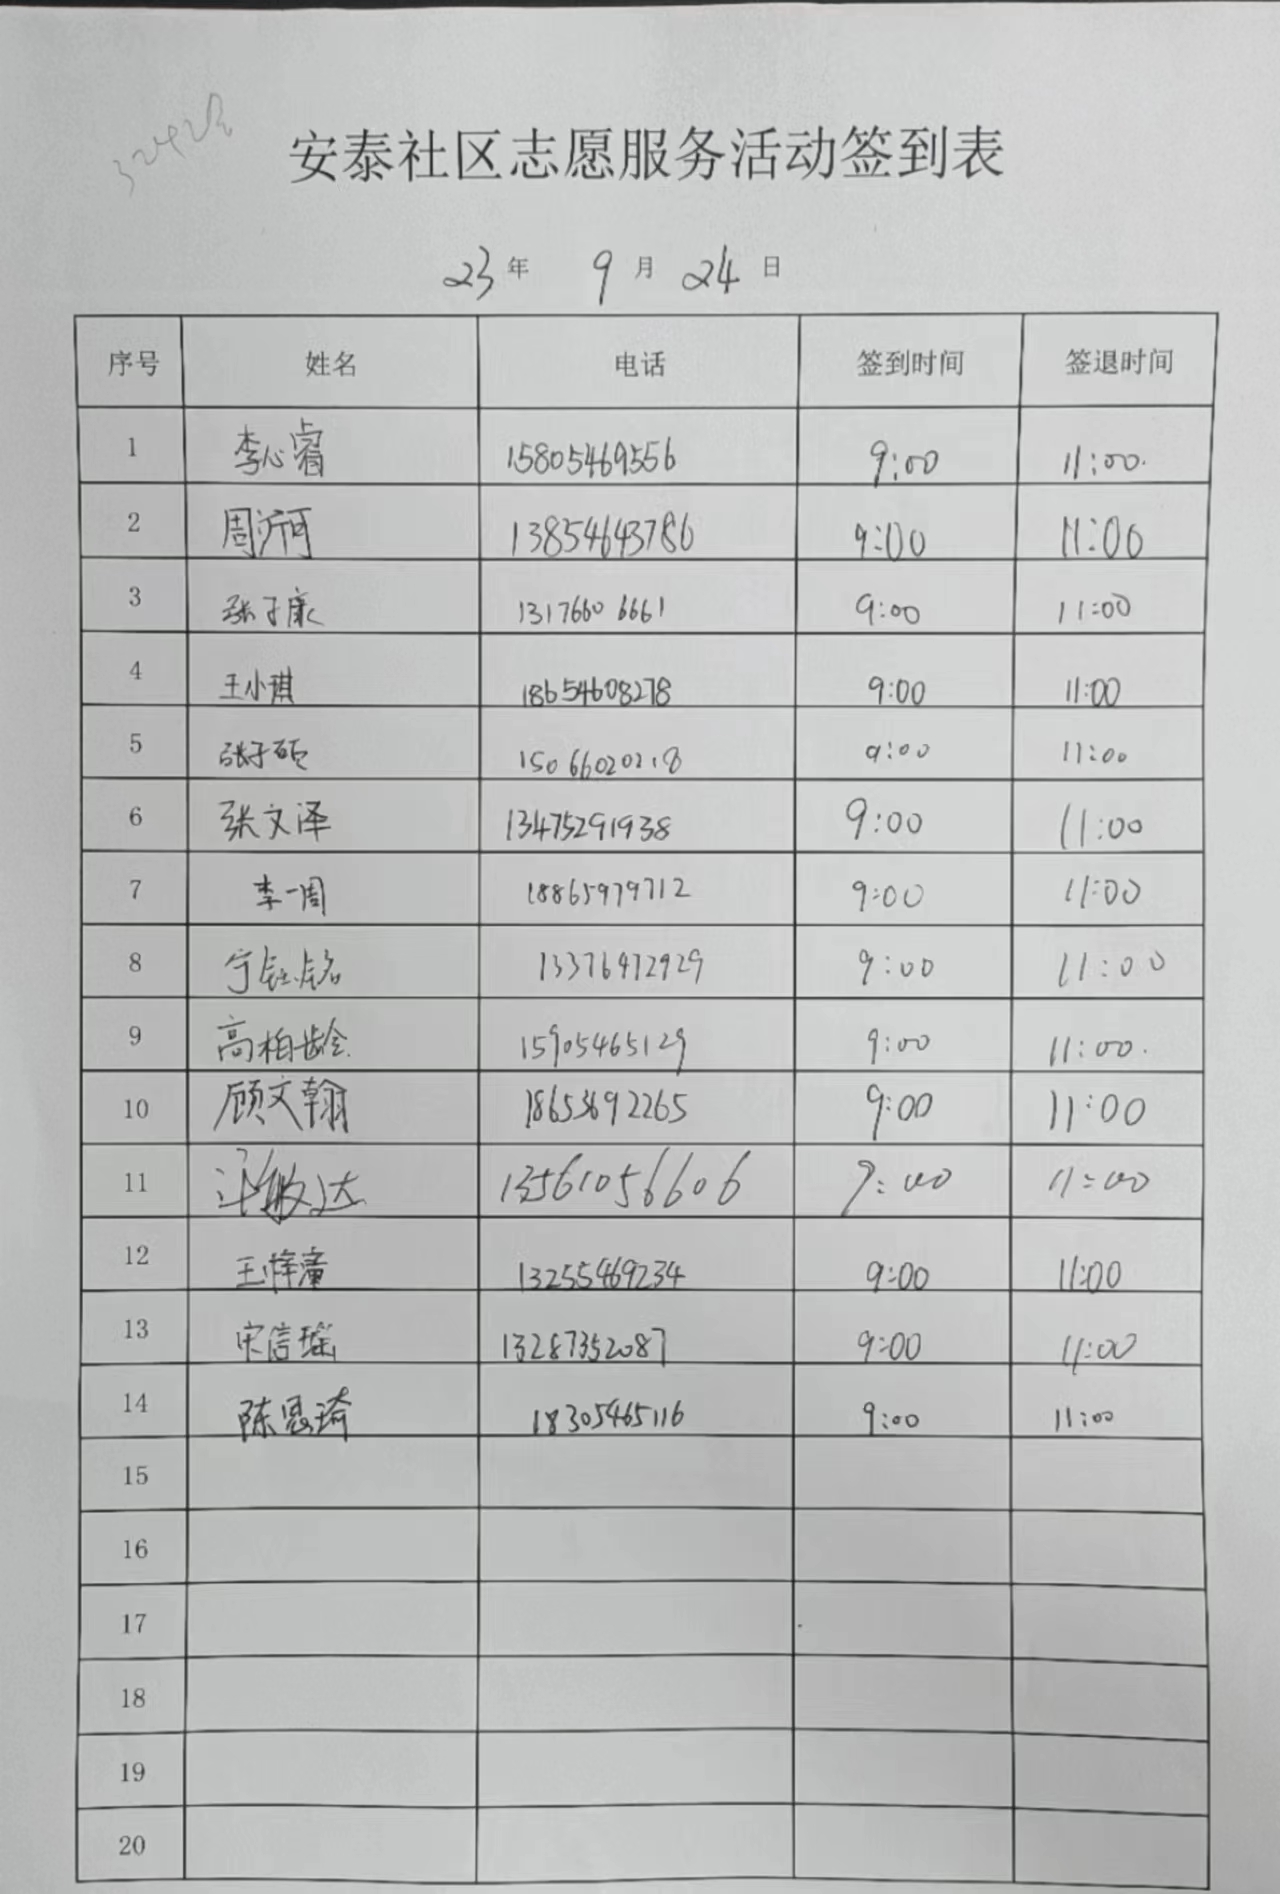 安泰社区志愿服务活动签到表
23年 9月 24日
序号 姓名 电话 签到时间 签退时间
1 李心睿 15805469556 9:00 11:00.
2 周沂河 13854643786 9:00 11:00
3 张子康 13176606661 9:00 11:00
4 王小琪 18654608278 9:00 11:00
5 张子硕 15066020218 9:00 11:00
6 张文泽 13475291938 9:00 11:00
7 李一周 18865979712 9:00 11:00
8 宁 13376472929 9:00 11:00
9 高柏龄 15905465129 9:00 11:00.
10 顾文翰 18653692265 9:00 11:00
11 敏达 13561056606 9:00 11:00
12 王梓潼 13255469234 9:00 11:00
13 宋信瑶 13287352087 9:00 11:00
14 陈思琦 18305465116 9:00 11:00
15
16
17
18
19
20